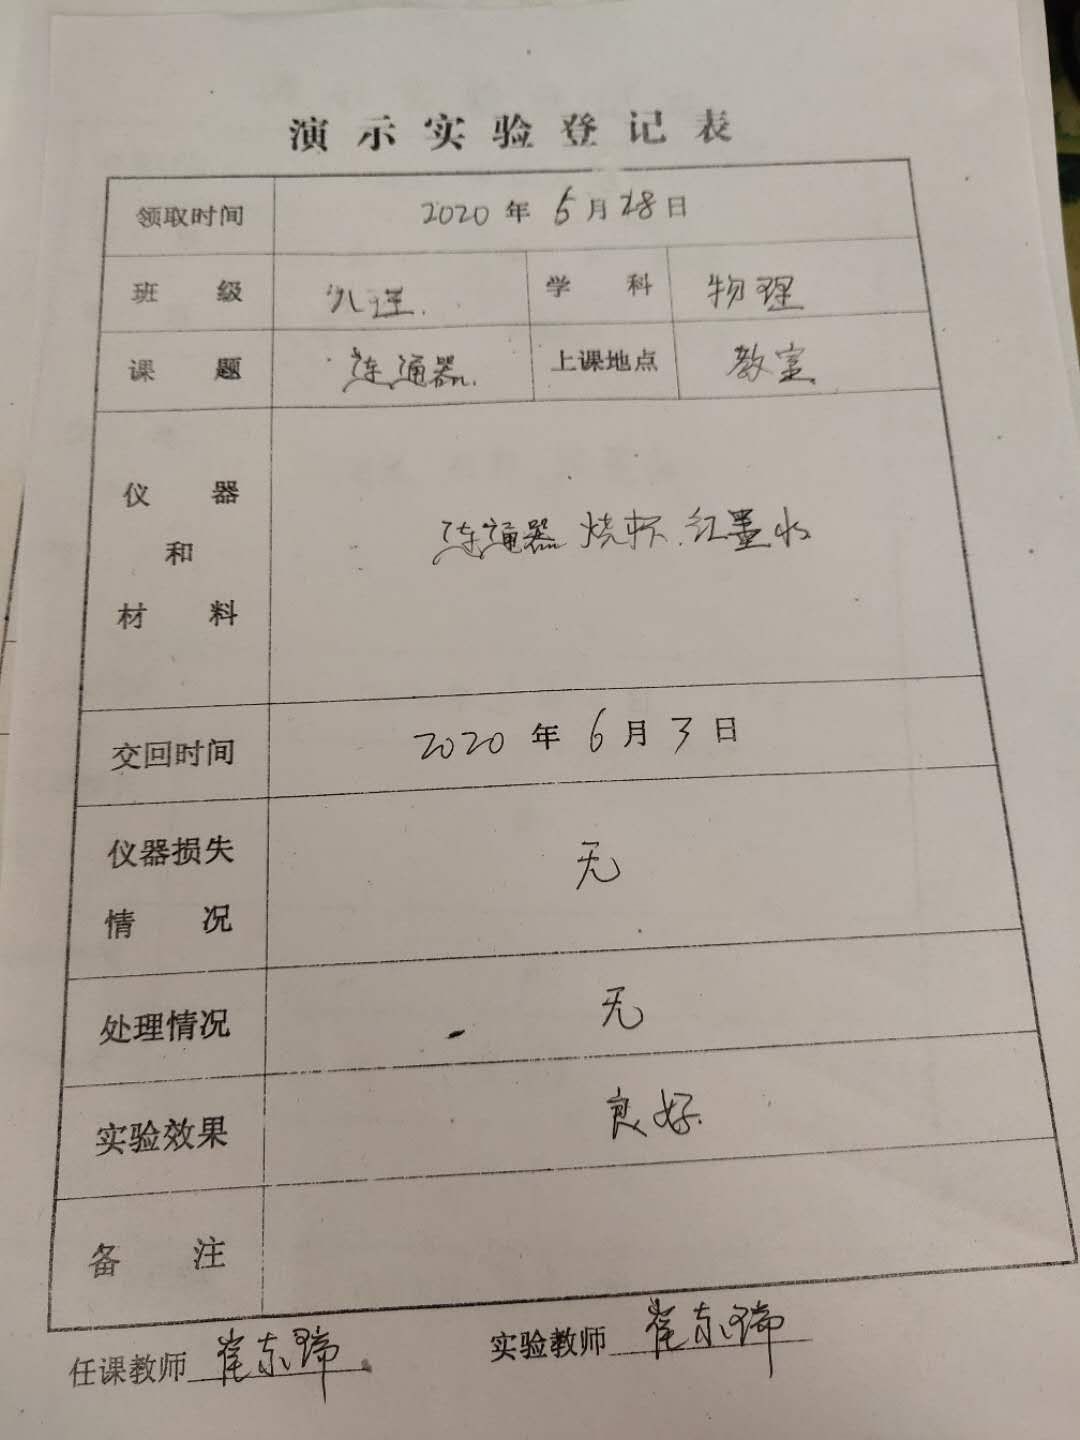 演示实验登记表
领取时间 2020年5月28日
班级 学科 物理
课题 连通器 上课地点 教室
仪器
和
材料
连通器 烧杯 红墨水
交回时间 2020年6月3日
仪器损失
情况
无
处理情况 无
实验效果 良好
备注
任课教师 崔东瑞 实验教师 崔东瑞